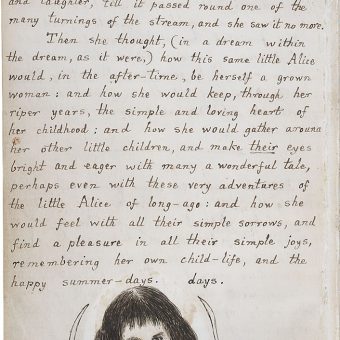 and laughter, till it passed round one of the
many turnings of the stream, and she saw it no more.
Then she thought, (in a dream within
the dream, as it were,) how this same little Alice
would, in the after-time, be herself a grown
woman: and how she would keep, through her
riper years, the simple and loving heart of
her childhood: and how she would gather around
her other little children, and make their eyes
bright and eager with many a wonderful tale,
perhaps even with these very adventures of
the little Alice of long-ago: and how she
would feel with all their simple sorrows, and
find a pleasure in all their simple joys,
remembering her own child-life, and the
happy summer-days. days.